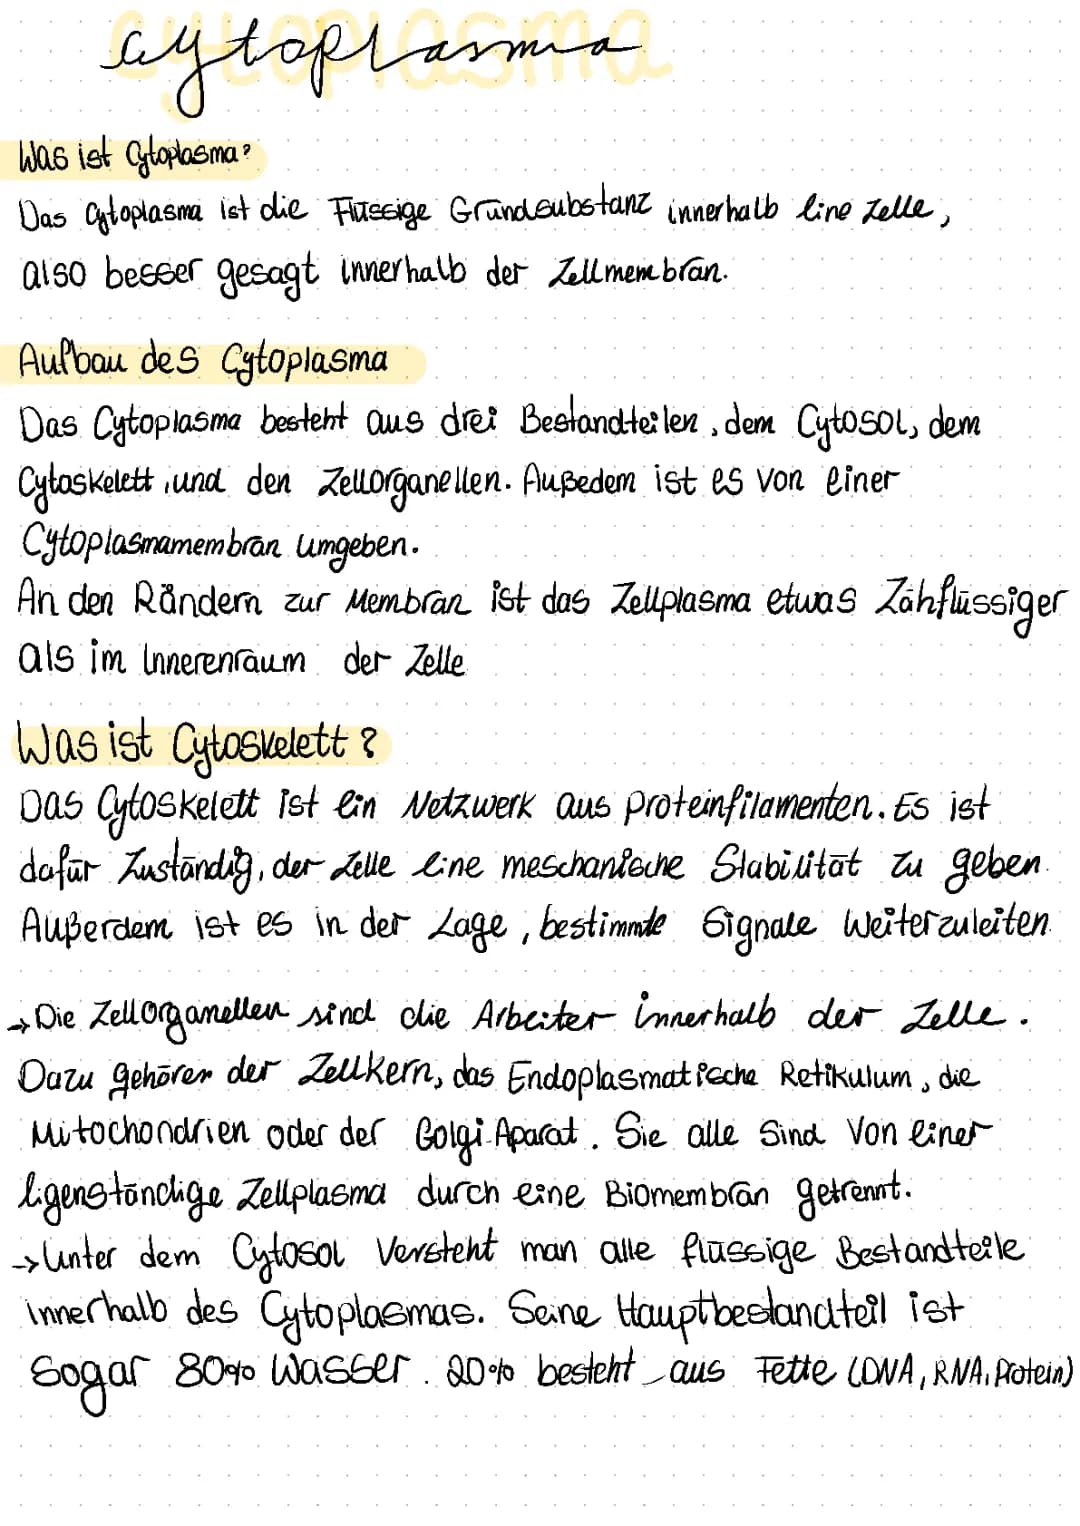 Cytoplasma
Was ist Cytoplasma?
Das Cytoplasma ist die Flüssige Grundsubstanz innerhalb eine Zelle,
also besser gesagt innerhalb der Zellmembran.
Aufbau des Cytoplasma
Das Cytoplasma besteht aus drei Bestandteilen, dem Cytosol, dem
Cytoskelett, und den Zellorganellen. Außedem ist es von einer
Cytoplasmamembran umgeben.
An den Rändern zur Membran ist das Zellplasma etwas Zähflüssiger
als im Innerenraum der Zelle
Was ist Cytoskelett?
Das Cytoskelett ist ein Netzwerk aus Proteinfilamenten. Es ist
dafür Zuständig, der Zelle eine meschanische Stabilität zu geben.
Außerdem ist es in der Lage, bestimmte Signale Weiterzuleiten
→ Die Zellorganellen sind die Arbeiter innerhalb der Zelle.
Dazu gehören der Zellkern, das Endoplasmatische Retikulum, die
Mitochondrien oder der Golgi-Aparat. Sie alle Sind Von einer
eigenständige Zellplasma durch eine Biomembran getrennt.
→ Unter dem Cytosol Versteht man alle flüssige Bestandteile
innerhalb des Cytoplasmas. Seine Hauptbestandteil ist
Sogar 80% Wasser. 20% besteht aus Fette (DNA, RNA, Protein)